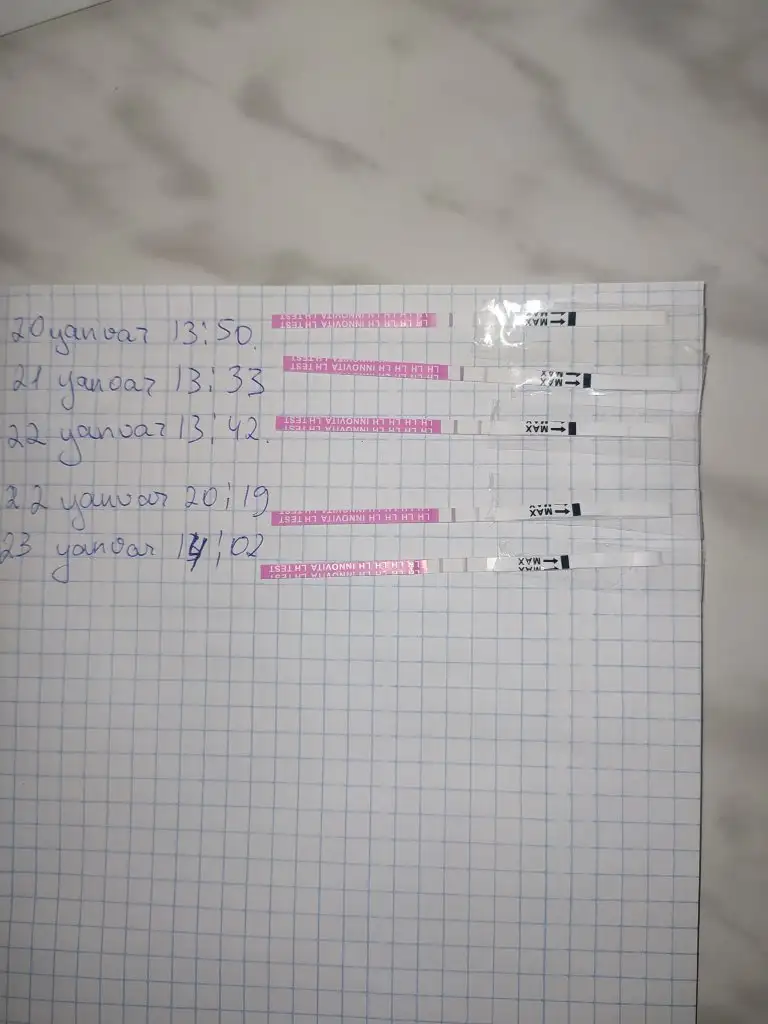 20 yanvar 13:50.
LH LH LH LH INNOVITA LH TEST
MAX
21 yanvar 13:33
LH LH LH LH INNOVITA LH TEST
MAX
22 yanvar 13:42.
LH LH LH LH INNOVITA LH TEST
MAX
22 yanvar 20:19
LH LH LH LH INNOVITA LH TEST
MAX
23 yanvar 14:02
LH LH LH LH INNOVITA LH TEST
MAX